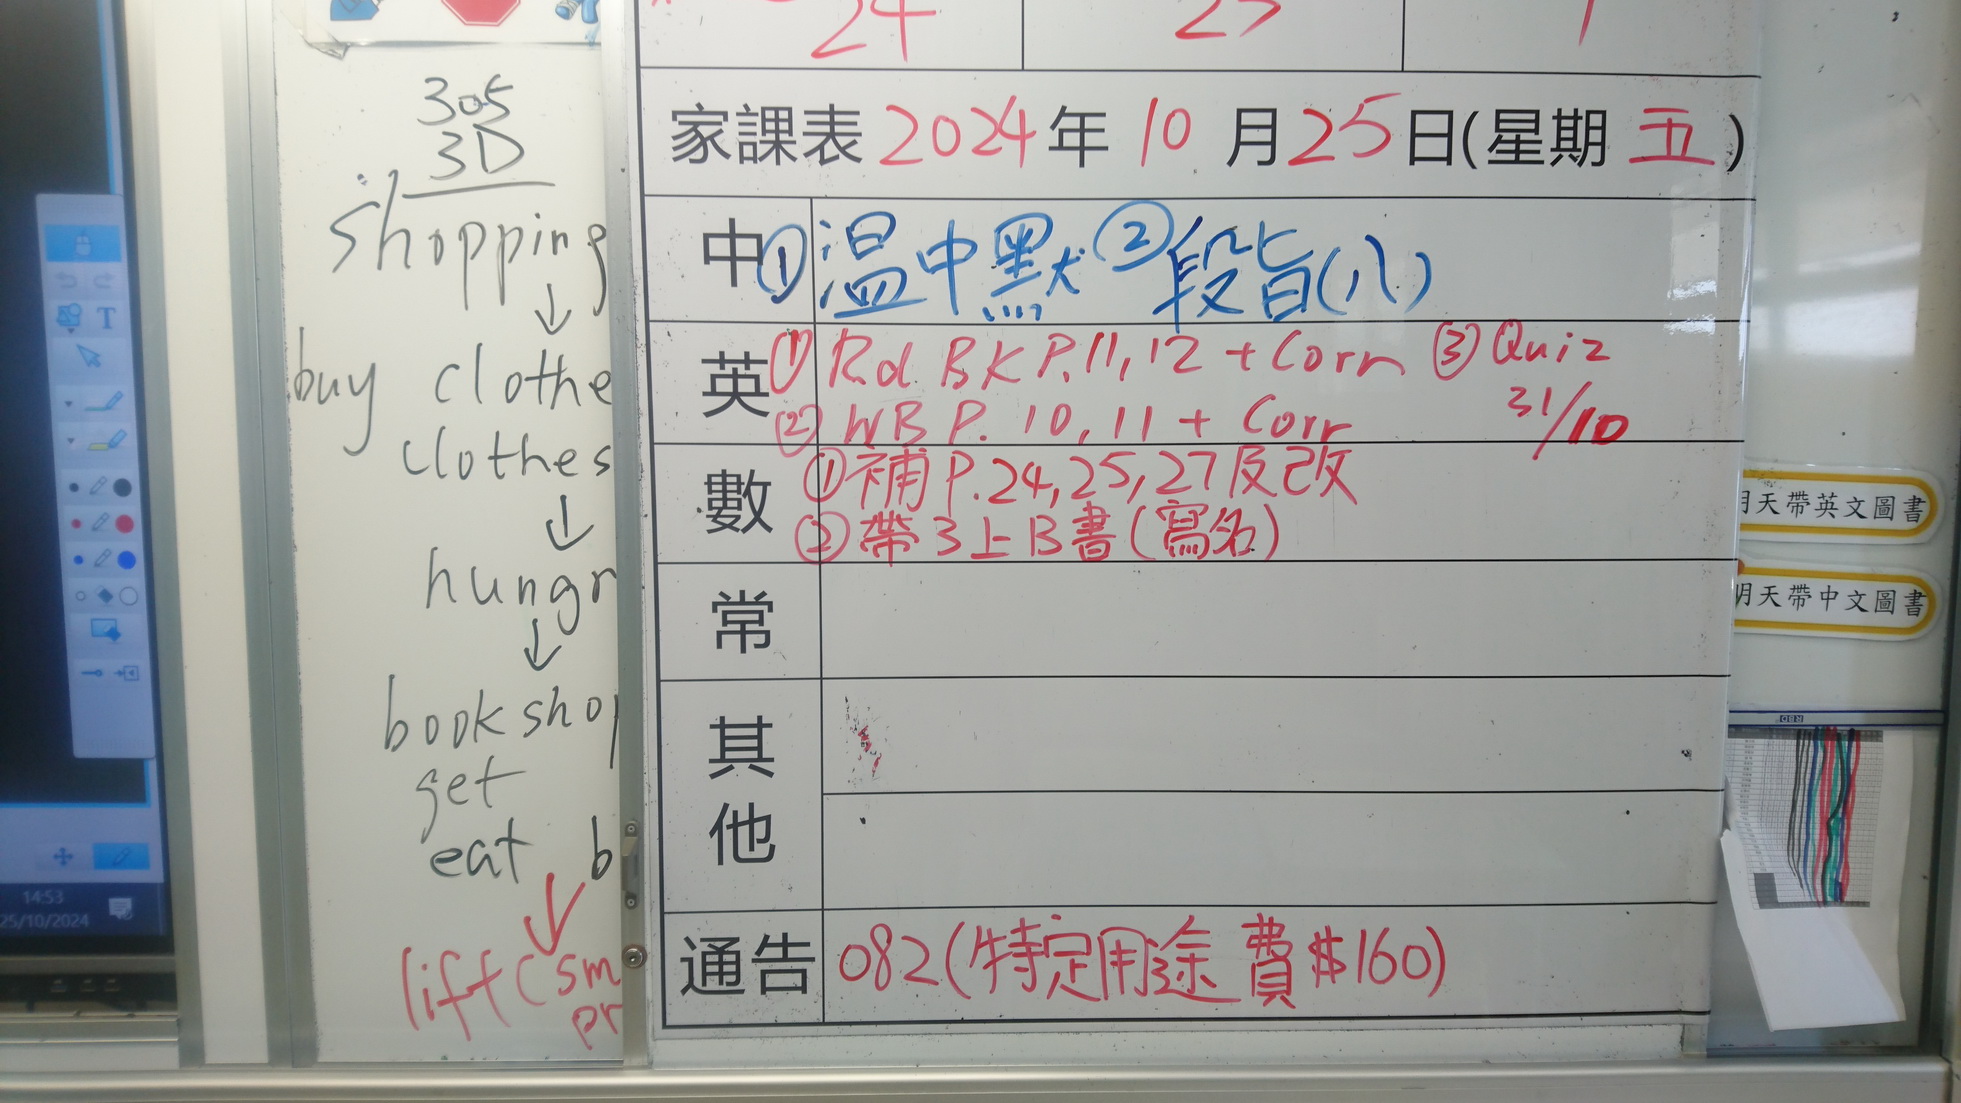 305
3D
shopping
↓
buy clothe
clothes
↓
hungr
↓
book shop
get
eat b
↓
lift ( sm
pr
24
家課表 2024年 10 月 25日(星期 五)
中 ①溫中默 ②段旨(八)
英 ① Rd BK P.11,12 + Corn ③ Quiz
② WB P. 10,11 + Corr 31/10
數 ①補P.24,25,27及改
②帶3上B書(寫名)
常
其
他
通告 082(特定用途費$160)
天帶英文圖書
明天帶中文圖書
T
14:53
25/10/2024